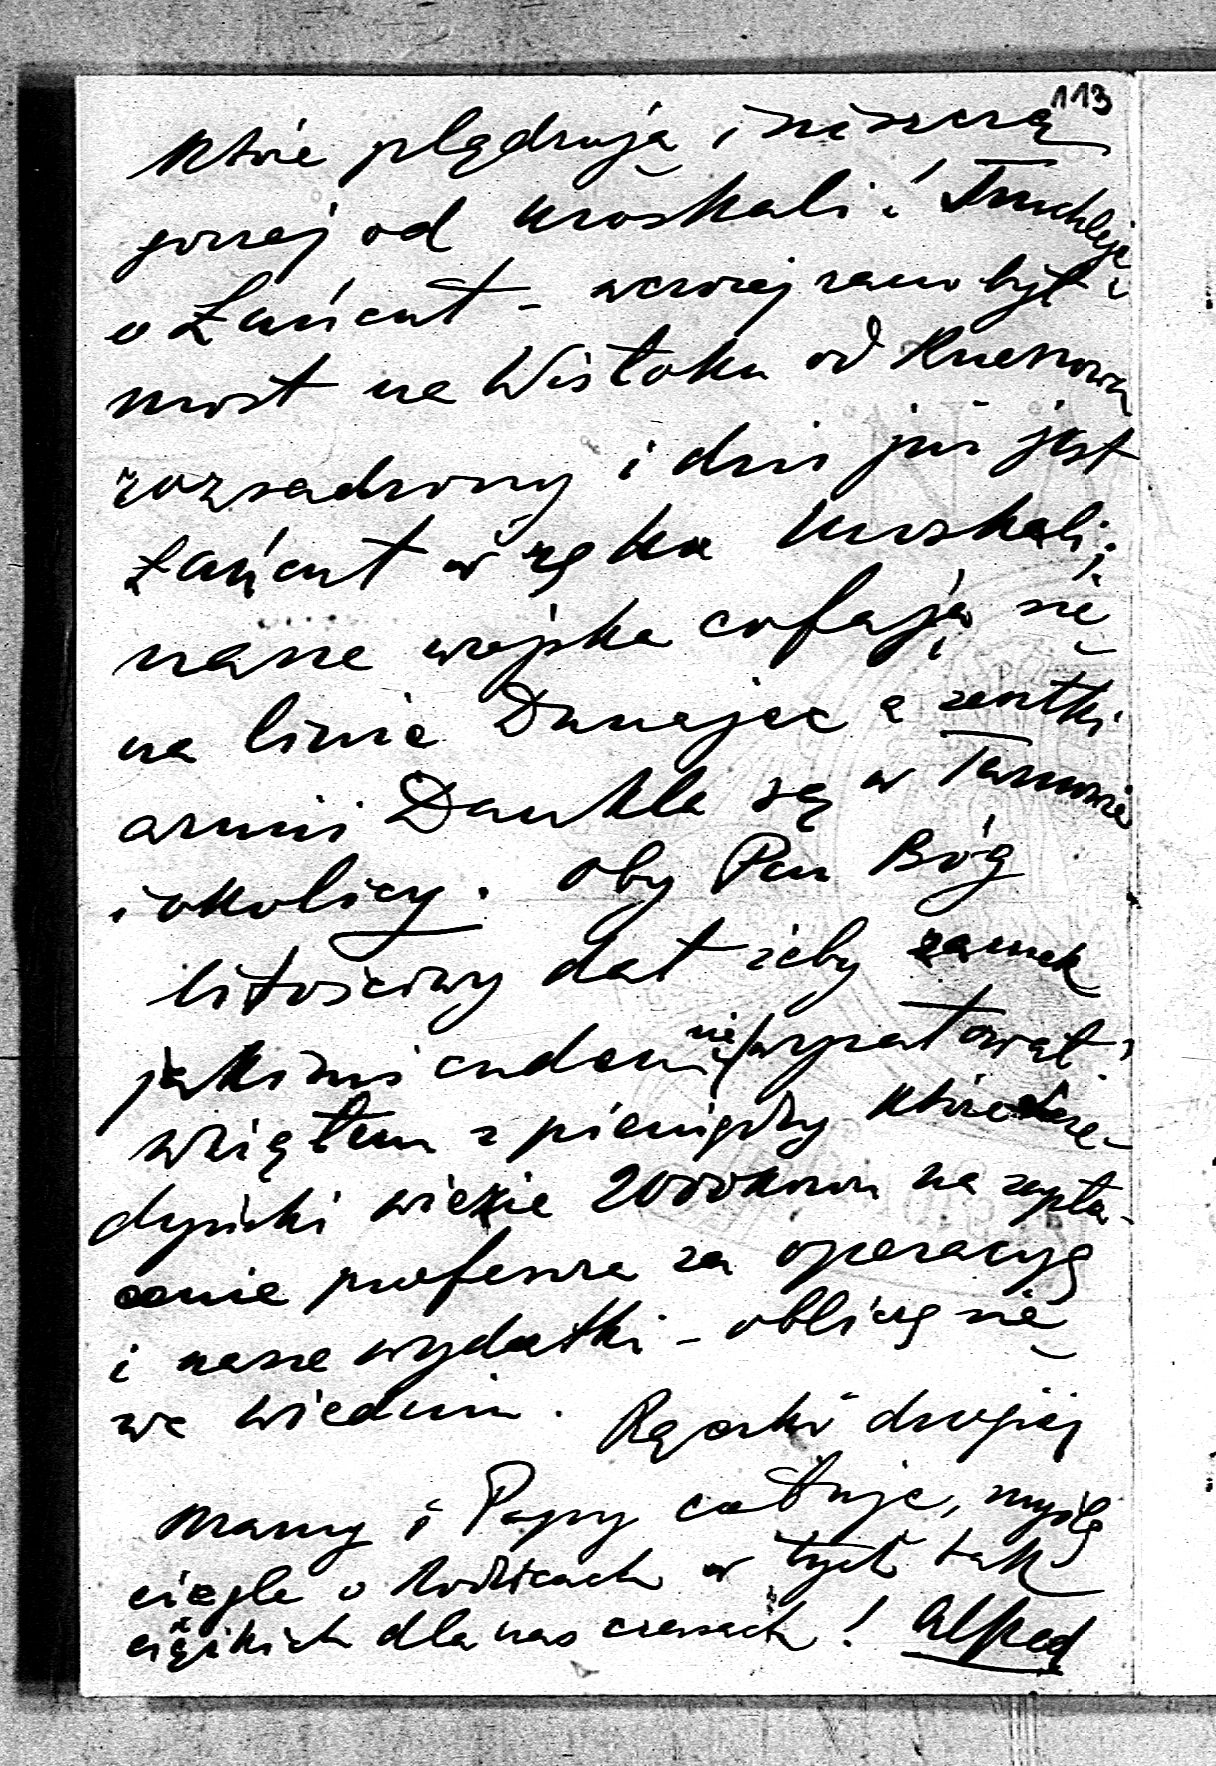 113
które plądrują i niszczą
gorzej od Moskali! Truchleję
o Łańcut - wczoraj rano był
most na Wisłoku od Rzeszowa
rozsadzony i dziś już jest
Łańcut w ręku Moskali;
nasze wojska cofają się
na linie Dunajec a resztki
armii Dankla są w Tarnowie
i okolicy. Oby Pan Bóg
litościwy dał żeby zamek
jakimś cudem się wyratował!
wziąłem z pieniędzy które
2000 koron na zapła-
cenie profesora za operacyę
i nasze wydatki - obliczę się
we Wiedniu. Rączki drogiej
Mamy i Papy całuję, myślę
ciągle o Rodzicach w tych tak
ciężkich dla nas czasach! Alfred